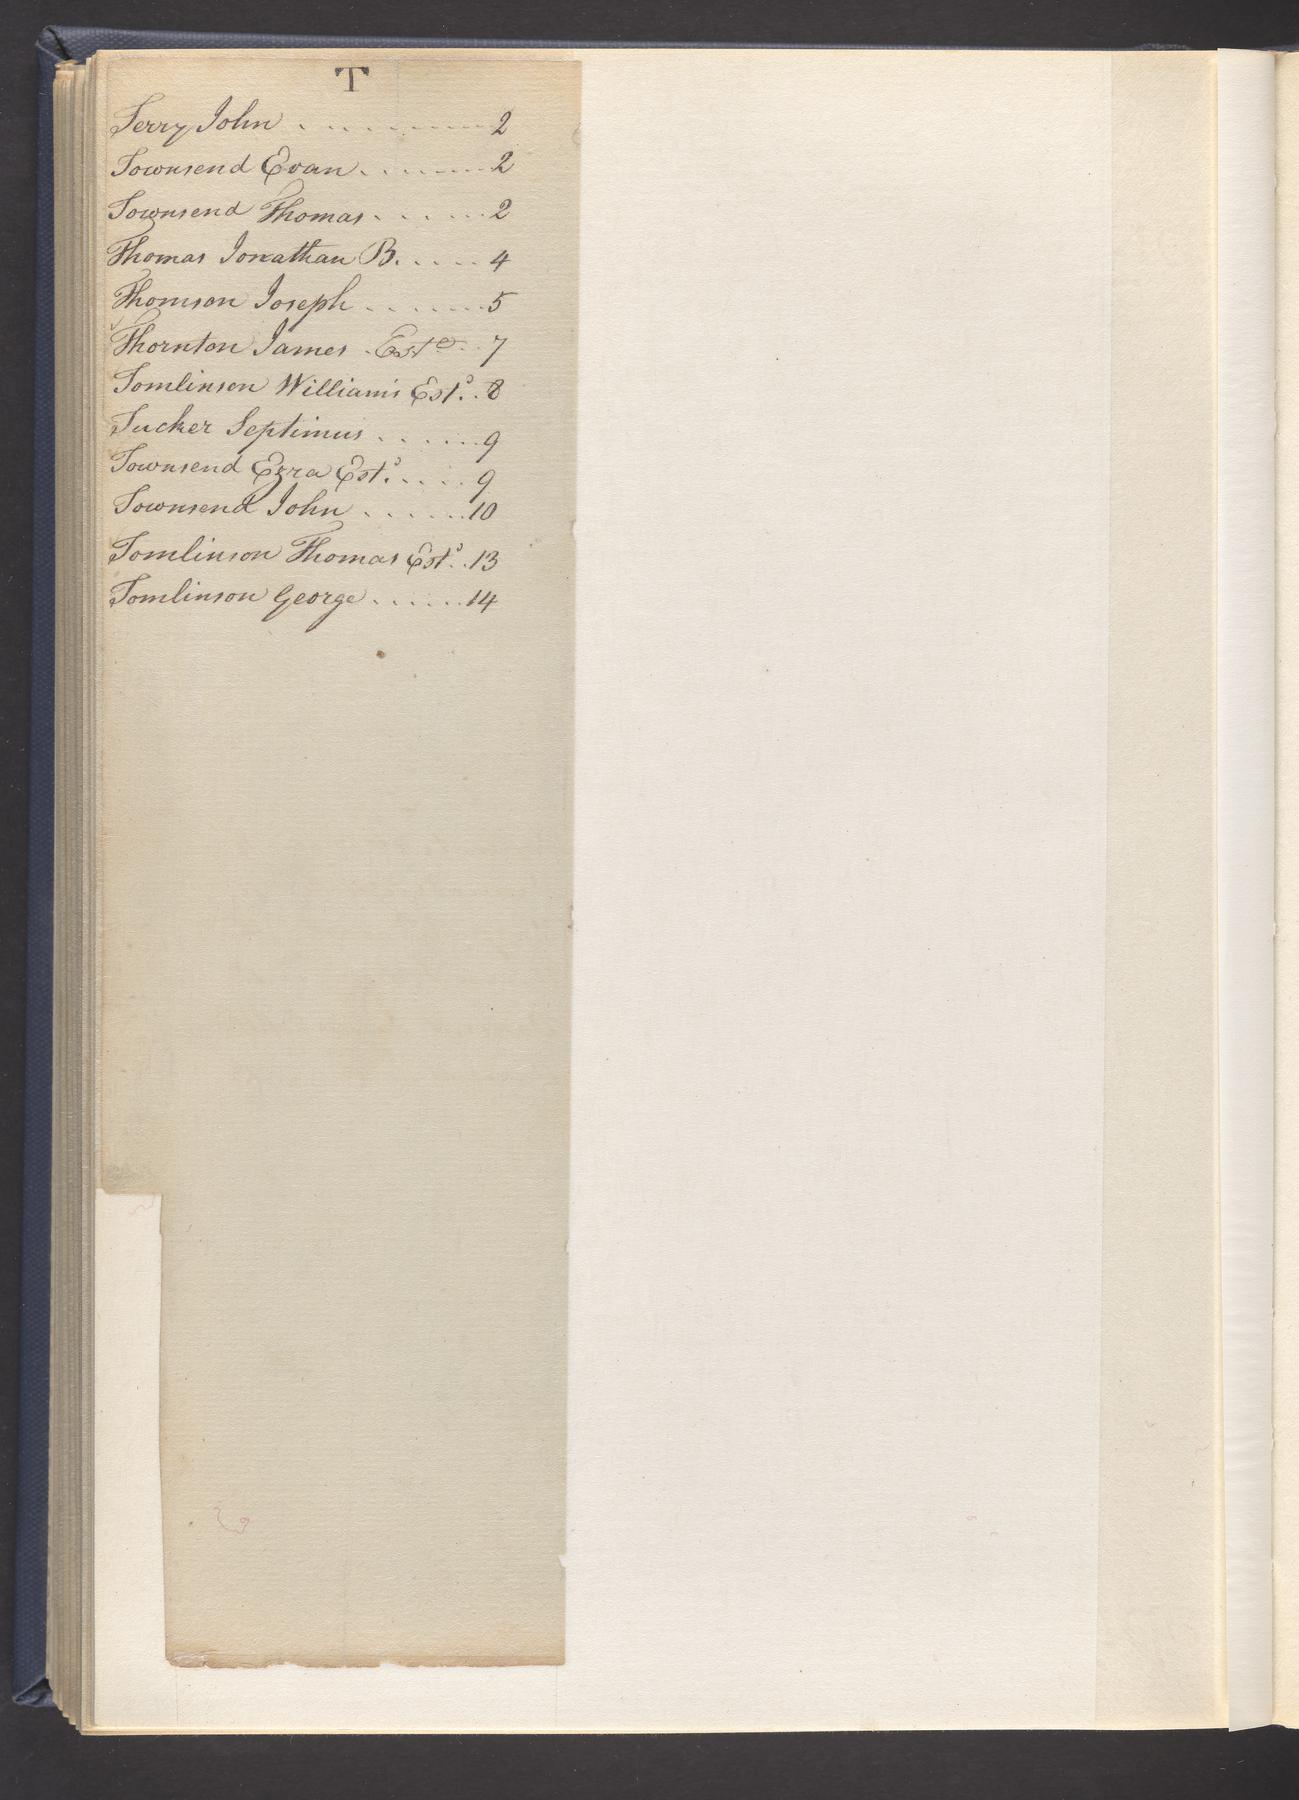 T
Terry John . . . . . . . . . 2
Townsend Evan . . . . . . . 2
Townsend Thomas . . . . . . 2
Thomas Jonathan B. . . . . 4
Thomson Joseph . . . . . . . 5
Thornton James . Est.e . . 7
Tomlinson William's Est.e . . 8
Tucker Septimus . . . . . . 9
Townsend Ezra Est.e . . . . 9
Townsend John . . . . . . . 10
Tomlinson Thomas Est.e . . 13
Tomlinson George . . . . . . 14